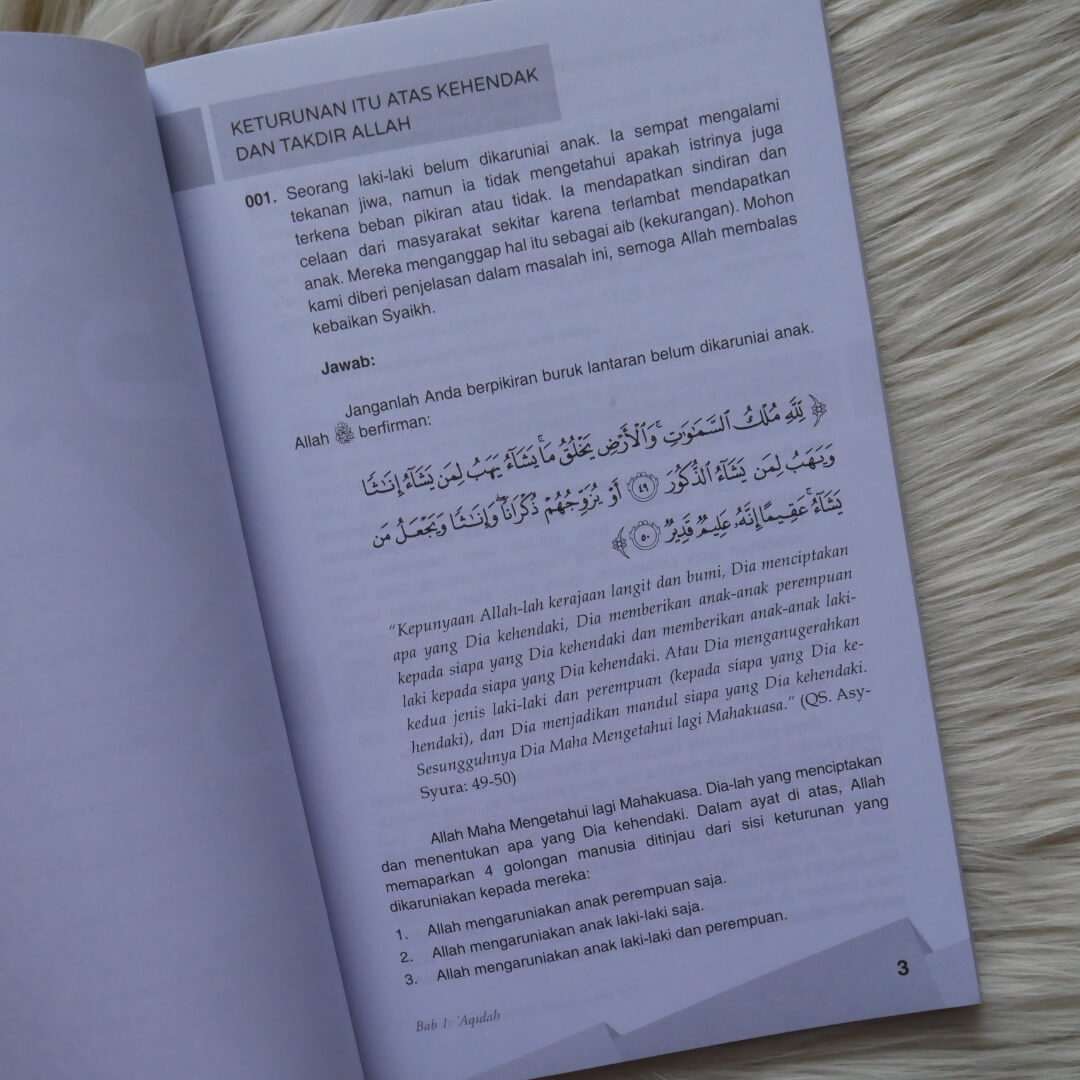 KETURUNAN ITU ATAS KEHENDAK
DAN TAKDIR ALLAH
001. Seorang laki-laki belum dikaruniai anak. Ia sempat mengalami
tekanan jiwa, namun ia tidak mengetahui apakah istrinya juga
terkena beban pikiran atau tidak. Ia mendapatkan sindiran dan
celaan dari masyarakat sekitar karena terlambat mendapatkan
anak. Mereka menganggap hal itu sebagai aib (kekurangan). Mohon
kami diberi penjelasan dalam masalah ini, semoga Allah membalas
kebaikan Syaikh.
Jawab:
Janganlah Anda berpikiran buruk lantaran belum dikaruniai anak.
Allah ﷻ berfirman:
﴿ لِلَّهِ مُلْكُ السَّمَٰوَٰتِ وَالْأَرْضِ يَخْلُقُ مَا يَشَاءُ يَهَبُ لِمَن يَشَاءُ إِنَٰثًا
وَيَهَبُ لِمَن يَشَاءُ الذُّكُورَ ٤٩ أَوْ يُزَوِّجُهُمْ ذُكْرَانًا وَإِنَٰثًا وَيَجْعَلُ مَن
يَشَاءُ عَقِيمًا إِنَّهُ عَلِيمٌ قَدِيرٌ ٥٠ ﴾
“Kepunyaan Allah-lah kerajaan langit dan bumi, Dia menciptakan
apa yang Dia kehendaki, Dia memberikan anak-anak perempuan
kepada siapa yang Dia kehendaki dan memberikan anak-anak laki-
laki kepada siapa yang Dia kehendaki. Atau Dia menganugerahkan
kedua jenis laki-laki dan perempuan (kepada siapa yang Dia ke-
hendaki), dan Dia menjadikan mandul siapa yang Dia kehendaki.
Sesungguhnya Dia Maha Mengetahui lagi Mahakuasa.” (QS. Asy-
Syura: 49-50)
Allah Maha Mengetahui lagi Mahakuasa. Dia-lah yang menciptakan
dan menentukan apa yang Dia kehendaki. Dalam ayat di atas, Allah
memaparkan 4 golongan manusia ditinjau dari sisi keturunan yang
dikaruniakan kepada mereka:
1. Allah mengaruniakan anak perempuan saja.
2. Allah mengaruniakan anak laki-laki saja.
3. Allah mengaruniakan anak laki-laki dan perempuan.
Bab 1: 'Aqidah
3